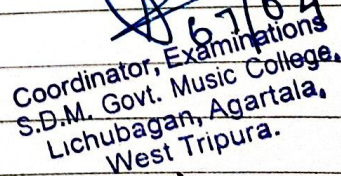 Coordinator, Examinations
S.D.M. Govt. Music College,
Lichubagan, Agartala,
West Tripura.